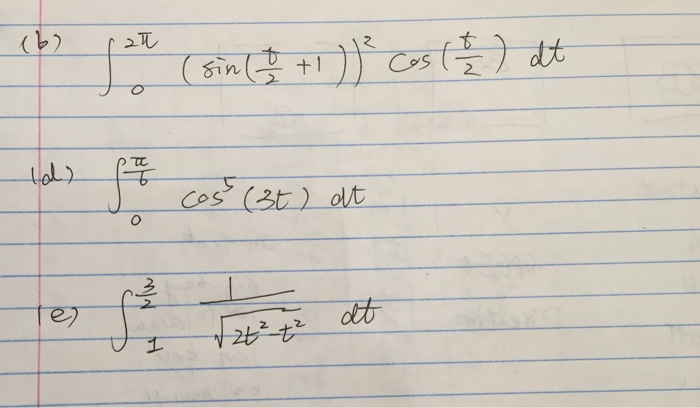 (b) ∫₀^{2π} (sin(t/2 +1))² cos(t/2) dt
(d) ∫₀^{π/6} cos⁵(3t) dt
(e) ∫₁^{3/2} 1/√(2t²-t²) dt